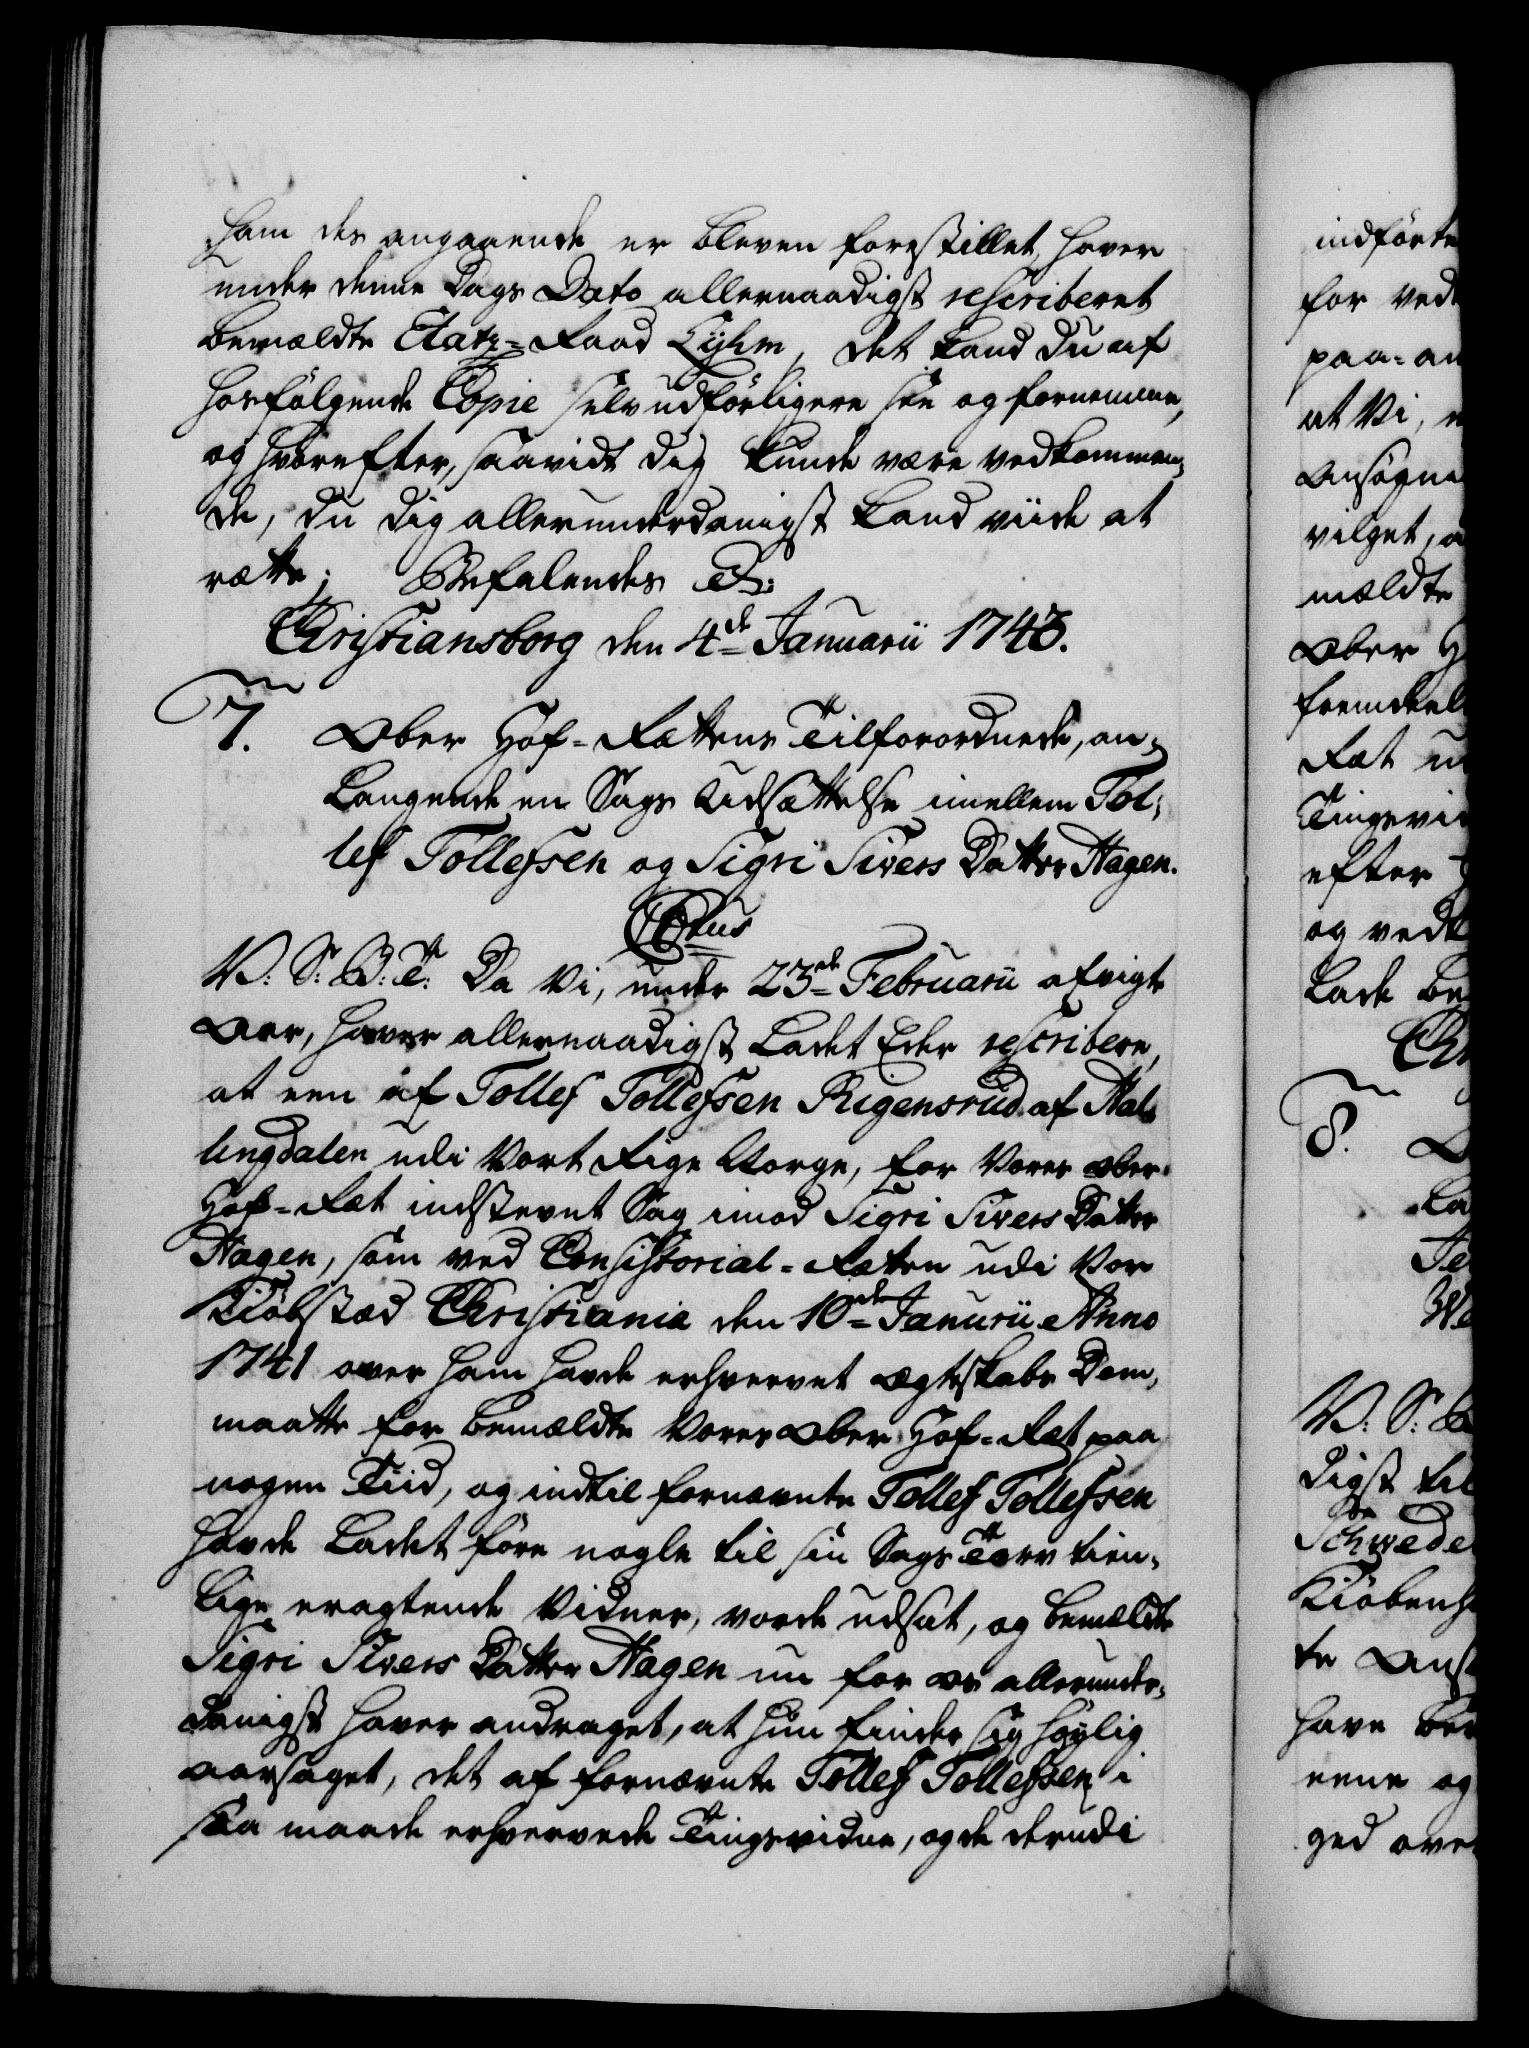 ham des angaaende er bleven forestillet, haver
under denne Dags Dato allernaadigst rescriberet
bemældte Etatz-Raad Lyhm, det kand du af
hosfølgende Copie selv udførligere see og fornemme,
og hvorefter, saavidt dig kunde være vedkommen-
de, du dig allerunderdanigst kand viide at
rætte; Befalendes &:
Christiansborg den 4de Januarii 1743.
7. Ober Hof-Rættens Tilforordnede, an-
langende en Sags Udsættelse imellem Tol-
lef Tollefsen og Sigri Sivers Datter Hagen.
C6tus
V: S: G: T: Da Vi, under 23de Februarii afvigte
Aar, haver allernaadigst ladet Eder rescribere,
at een af Tollef Tollefsen Rigensrud af Hal-
lingdalen udi Vort Rige Norge, for Vores Ober-
Hof-Ræt indstevnt Sag imod Sigri Sivers Datter
Hagen, som ved Consistorial-Rætten udi Vor
Kiøbstæd Christiania den 10de Januarii Anno
1741 over ham havde erhvervet Ægteskabs Dom,
maatte for bemældte Vores Ober Hof-Ræt paa
nogen Tiid, og indtil fornævnte Tollef Tollefsen
havde ladet føre nogle til sin Sags Tarv tien-
lige eragtende Vidner, vorde udsat, og bemældte
Sigri Sivers Datter Hagen nu for os allerunder-
danigst haver andraget, at hun finder sig høylig
aarsaget, det af fornævnte Tollef Tollefsen i
saa maade erhvervede Tingsvidne, og de derudi
indførte
for ved
paa-an
at Vi,
Ansøgne
vilget, a
mældte
Ober H
fremdeel
Ræt u
Tingsvi
efter
og ved
lade be
Ch
8.
La
V: S:
digst til
Schwede
Kiøbenh
te Ans
have be
eene og
ged ove